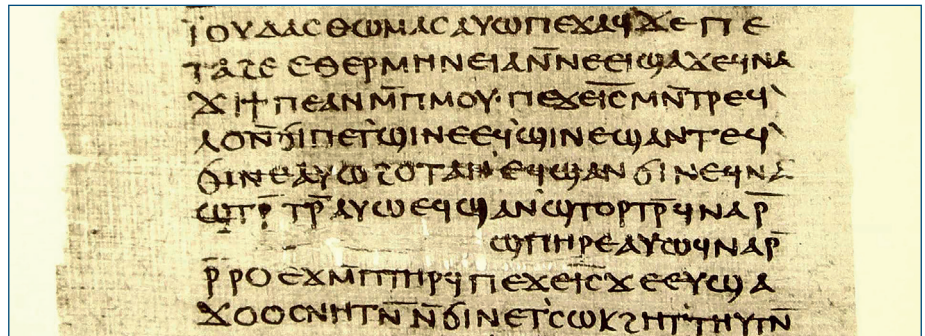 ⲓ̈ⲟⲩⲇⲁⲥⲑⲱⲙⲁⲥⲁⲩⲱⲡⲉϫⲁϥϫⲉⲡⲉ
ⲧⲁϩⲉⲉⲑⲉⲣⲙⲏⲛⲉⲓⲁⲛ̄ⲛⲉⲉⲓϣⲁϫⲉϥⲛⲁ
ϫⲓϯⲡⲉⲁⲛⲙ̄ⲡⲙⲟⲩ·ⲡⲉϫⲉⲓ̄ⲥ̄ⲙⲛ̄ⲧⲣⲉϥ'
ⲗⲟⲛ̄ϭⲓⲡⲉⲧ'ϣⲓⲛⲉⲉϥ'ϣⲓⲛⲉϣⲁⲛⲧⲉϥ'
ϭⲓⲛⲉⲁⲩⲱϩⲟⲧⲁⲛ'ⲉϥϣⲁⲛϭⲓⲛⲉϥⲛⲁ
ϣⲧⲣ̄ⲧⲣ̄ⲁⲩⲱⲉϥϣⲁⲛϣⲧⲟⲣⲧⲣ̄ϥⲛⲁⲣ̄
ϣⲡⲏⲣⲉⲁⲩⲱϥⲛⲁⲣ̄
ⲣ̄ⲣⲟⲉϫⲙ̄ⲡⲧⲏⲣϥⲡⲉϫⲉⲓ̄ⲥ̄ϫⲉⲉⲩϣⲁ
ϫⲟⲟⲥⲛⲏⲧⲛ̄ⲛ̄ϭⲓⲛⲉⲧ'ⲥⲱⲕϩⲏⲧ'ⲧⲏⲩⲧⲛ̄